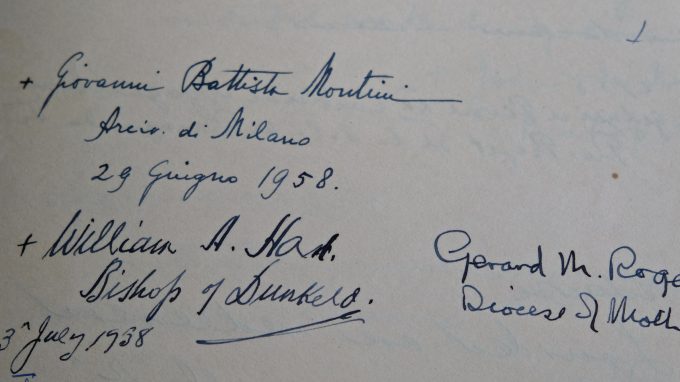 + Giovanni Battista Montini
Arciv. di Milano
29 Giugno 1958.
+ William A. Hart.
Bishop of Dunkeld.
3 July 1958
Gerard M. Roge
Diocese of Moth